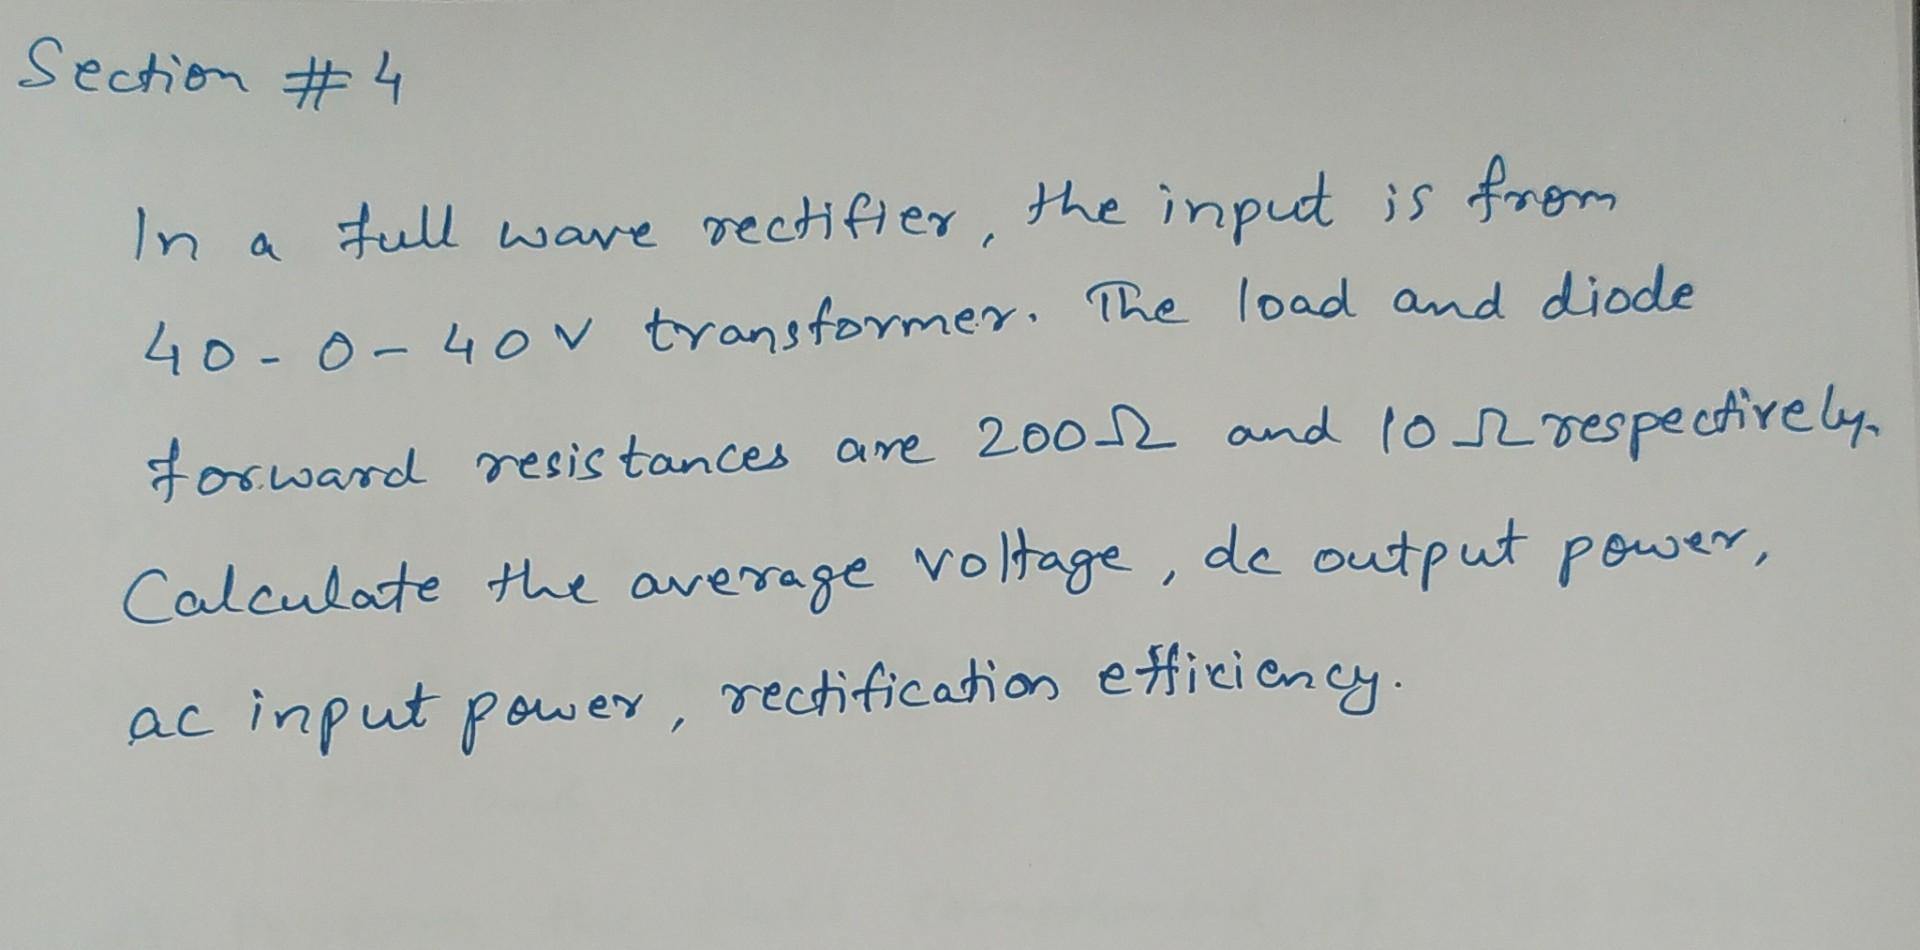 Section # 4
In a full wave rectifier, the input is from
40-0-40V transformer. The load and diode
forward resistances are 200Ω and 10Ω respectively.
Calculate the average voltage, dc output power,
ac input power, rectification efficiency.